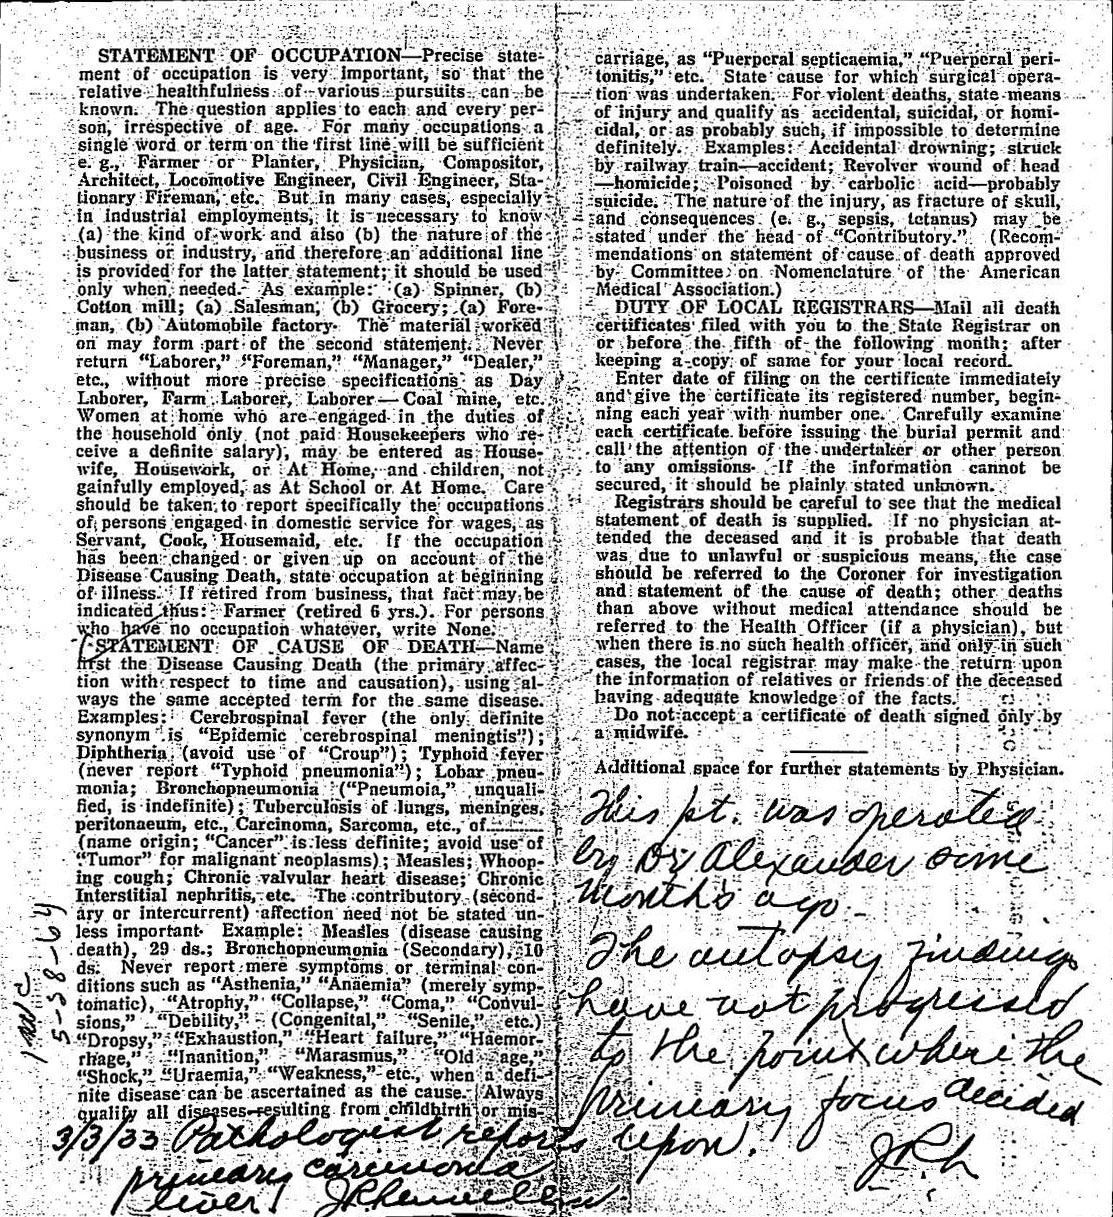 STATEMENT OF OCCUPATION—Precise state-
ment of occupation is very important, so that the
relative healthfulness of various pursuits can be
known. The question applies to each and every per-
son, irrespective of age. For many occupations a
single word or term on the first line will be sufficient
e. g., Farmer or Planter, Physician, Compositor,
Architect, Locomotive Engineer, Civil Engineer, Sta-
tionary Fireman, etc. But in many cases, especially
in industrial employments, it is necessary to know
(a) the kind of work and also (b) the nature of the
business or industry, and therefore an additional line
is provided for the latter statement; it should be used
only when needed. As example: (a) Spinner, (b)
Cotton mill; (a) Salesman, (b) Grocery; (a) Fore-
man, (b) Automobile factory. The material worked
on may form part of the second statement. Never
return "Laborer," "Foreman," "Manager," "Dealer,"
etc., without more precise specifications as Day
Laborer, Farm Laborer, Laborer—Coal mine, etc.
Women at home who are engaged in the duties of
the household only (not paid Housekeepers who re-
ceive a definite salary), may be entered as House-
wife, Housework, or At Home, and children, not
gainfully employed, as At School or At Home. Care
should be taken to report specifically the occupations
of persons engaged in domestic service for wages, as
Servant, Cook, Housemaid, etc. If the occupation
has been changed or given up on account of the
Disease Causing Death, state occupation at beginning
of illness. If retired from business, that fact may be
indicated thus: Farmer (retired 6 yrs.). For persons
who have no occupation whatever, write None.
STATEMENT OF CAUSE OF DEATH—Name
first the Disease Causing Death (the primary affec-
tion with respect to time and causation), using al-
ways the same accepted term for the same disease.
Examples: Cerebrospinal fever (the only definite
synonym is "Epidemic cerebrospinal meningtis");
Diphtheria (avoid use of "Croup"); Typhoid fever
(never report "Typhoid pneumonia"); Lobar pneu-
monia; Bronchopneumonia ("Pneumoia," unquali-
fied, is indefinite); Tuberculosis of lungs, meninges,
peritonaeum, etc., Carcinoma, Sarcoma, etc., of............
(name origin; "Cancer" is less definite; avoid use of
"Tumor" for malignant neoplasms); Measles; Whoop-
ing cough; Chronic valvular heart disease; Chronic
Interstitial nephritis, etc. The contributory (second-
ary or intercurrent) affection need not be stated un-
less important. Example: Measles (disease causing
death), 29 ds.; Bronchopneumonia (Secondary), 10
ds. Never report mere symptoms or terminal con-
ditions such as "Asthenia," "Anaemia" (merely symp-
tomatic), "Atrophy," "Collapse," "Coma," "Convul-
sions," "Debility," (Congenital," "Senile," etc.)
"Dropsy," "Exhaustion," "Heart failure," "Haemor-
rhage," "Inanition," "Marasmus," "Old age,"
"Shock," "Uraemia," "Weakness," etc., when a defi-
nite disease can be ascertained as the cause. Always
qualify all diseases resulting from childbirth or mis-
3/3/33 Pathologist reports
primary carcinoma
liver
5-58-64
carriage, as "Puerperal septicaemia," "Puerperal peri-
tonitis," etc. State cause for which surgical opera-
tion was undertaken. For violent deaths, state means
of injury and qualify as accidental, suicidal, or homi-
cidal, or as probably such, if impossible to determine
definitely. Examples: Accidental drowning; struck
by railway train—accident; Revolver wound of head
—homicide; Poisoned by carbolic acid—probably
suicide. The nature of the injury, as fracture of skull,
and consequences (e. g., sepsis, tetanus) may be
stated under the head of "Contributory." (Recom-
mendations on statement of cause of death approved
by Committee on Nomenclature of the American
Medical Association.)
DUTY OF LOCAL REGISTRARS—Mail all death
certificates filed with you to the State Registrar on
or before the fifth of the following month; after
keeping a copy of same for your local record.
Enter date of filing on the certificate immediately
and give the certificate its registered number, begin-
ning each year with number one. Carefully examine
each certificate before issuing the burial permit and
call the attention of the undertaker or other person
to any omissions. If the information cannot be
secured, it should be plainly stated unknown.
Registrars should be careful to see that the medical
statement of death is supplied. If no physician at-
tended the deceased and it is probable that death
was due to unlawful or suspicious means, the case
should be referred to the Coroner for investigation
and statement of the cause of death; other deaths
than above without medical attendance should be
referred to the Health Officer (if a physician), but
when there is no such health officer, and only in such
cases, the local registrar may make the return upon
the information of relatives or friends of the deceased
having adequate knowledge of the facts.
Do not accept a certificate of death signed only by
a midwife.
Additional space for further statements by Physician.
This pt. was operated
by Dr Alexander some
months ago.
The autopsy findings
have not progressed
to the point where the
primary focus decided
upon.